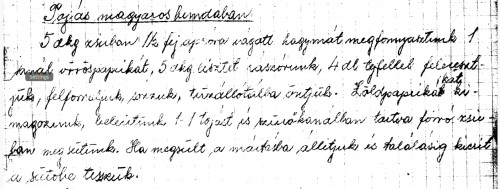 Tojás magyaros bundában
5 dkg zsiban 1/2 fej apróra vágott hagymát megfonnyasztunk 1
kanál vöröspaprikát, 5 dkg lisztet rászórunk, 4 dl tejfellel felereszt-
jük, felforraljuk, sózzuk, tűzállótálba öntjük. Zöldpaprikákat ki-
magozunk, beleütünk 1-1 tojást és szűrőkanálban tartva forró zsir-
ban megsütünk. Ha megsült, a mártásba állítjuk és tálalásig kicsit
a sütőbe tesszük.